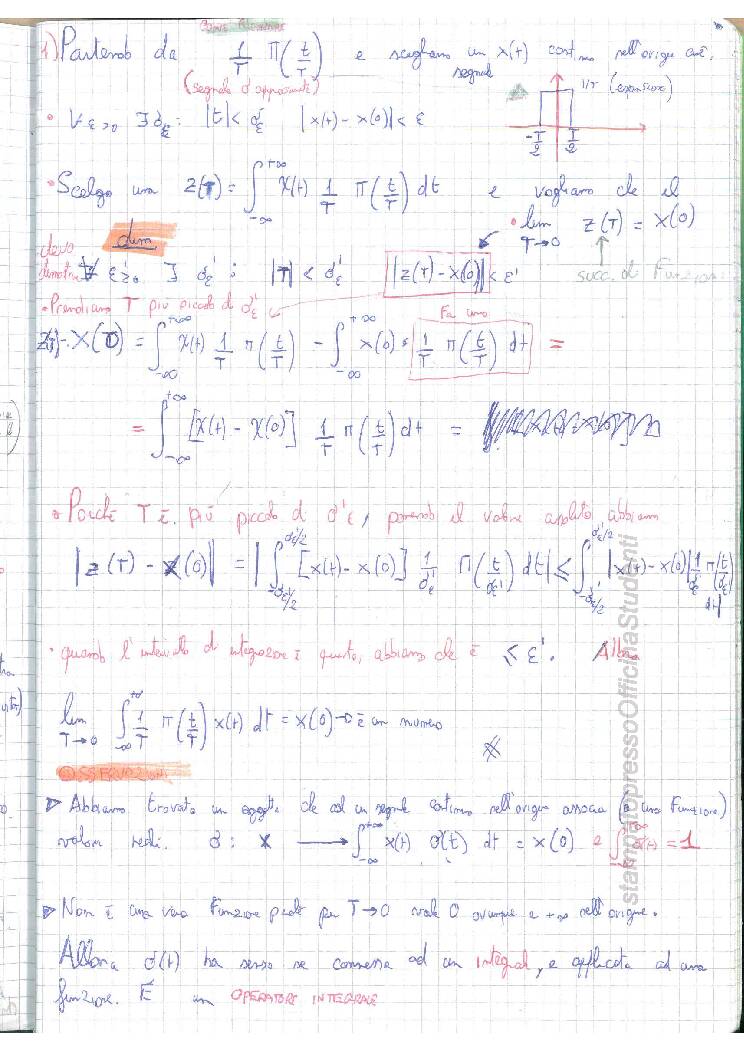 1) Partendo da 1/T Π(t/T) e scegliamo un x(t) continuo nell'origine cioè:
(segnale δ approssimante) segnale
1/T (espansione)
-T/2 T/2
• ∀ε>0 ∃δε: |t| < δε |x(t) - x(0)| < ε
• Scelgo una z(T) = ∫_{-∞}^{+∞} x(t) 1/T Π(t/T) dt e vogliamo che il
• lim_{T→0} z(T) = x(0)
dim
succ. di Funzioni
devo dimostrare ∀ ε'>0 ∃ δ'ε : |T| < δ'ε |z(T) - x(0)| < ε'
• Prendiamo T più piccolo di δ'ε
Fa uno
z(T) - x(0) = ∫_{-∞}^{+∞} x(t) 1/T Π(t/T) - ∫_{-∞}^{+∞} x(0) • 1/T Π(t/T) dt =
= ∫_{-∞}^{+∞} [x(t) - x(0)] 1/T Π(t/T) dt =
• Poiché T è più piccolo di δ'ε, ponendo il valore assoluto abbiamo
|z(T) - x(0)| = |∫_{-δ'ε/2}^{δ'ε/2} [x(t) - x(0)] 1/δ'ε Π(t/δ'ε) dt| ≤ ∫_{-δ'ε/2}^{δ'ε/2} |x(t) - x(0)| 1/δ'ε Π(t/δ'ε) dt|
• quando l'intervallo di integrazione è questo, abbiamo che è ≤ ε'. Allora
lim_{T→0} ∫_{-∞}^{+∞} 1/T Π(t/T) x(t) dt = x(0) → è un numero
OSSERVAZIONI
▷ Abbiamo trovato un oggetto che ad un segnale continuo nell'origine associa (a una Funzione)
valori reali. δ: x → ∫_{-∞}^{+∞} x(t) δ(t) dt = x(0) e ∫_{-∞}^{+∞} δ(t) = 1
▷ Non è una vera Funzione perché per T→0 vale 0 ovunque e +∞ nell'origine.
Allora δ(t) ha senso se connessa ad un integrale, e applicata ad una
funzione. È un OPERATORE INTEGRALE
stampatopressoOfficinaStudenti